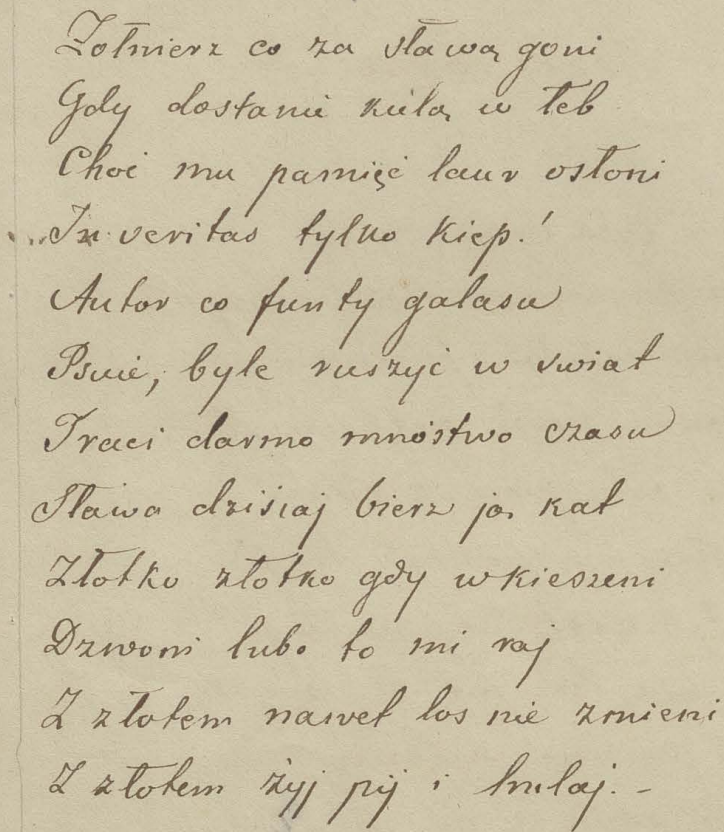 Żołnierz co za sławą goni
Gdy dostanie kulą w łeb
Choć mu pamięć laur osłoni
In veritas tylko kiep!
Autor co funty galasu
Psuie, byle ruszyć w swiat
Traci darmo mnóstwo czasu
Sława dzisiaj bierz ją kat
Złotko złotko gdy wkieszeni
Dzwoni lubo to mi raj
Z złotem nawet los nie zmieni
Z złotem żyj pij i hulaj. -